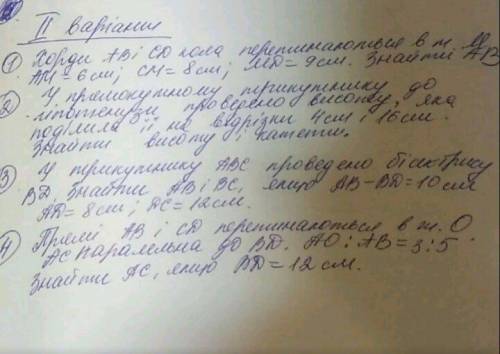 II варіант
① Хорди AB і CD кола перетинаються в т. M
AM = 6 см; CM = 8 см; MD = 9 см. Знайти AB
② У прямокутному трикутнику до
гіпотенузи проведено висоту, яка
поділила її на відрізки 4 см і 16 см.
Знайти висоту і катети.
③ У трикутнику ABC проведено бісектрису
BD. Знайти AB і BC, якщо AB – BD = 10 см
AD = 8 см; DC = 12 см.
④ Прямі AB і CD перетинаються в т. O
AC паралельна до BD. AO : AB = 3 : 5
Знайти AC, якщо BD = 12 см.